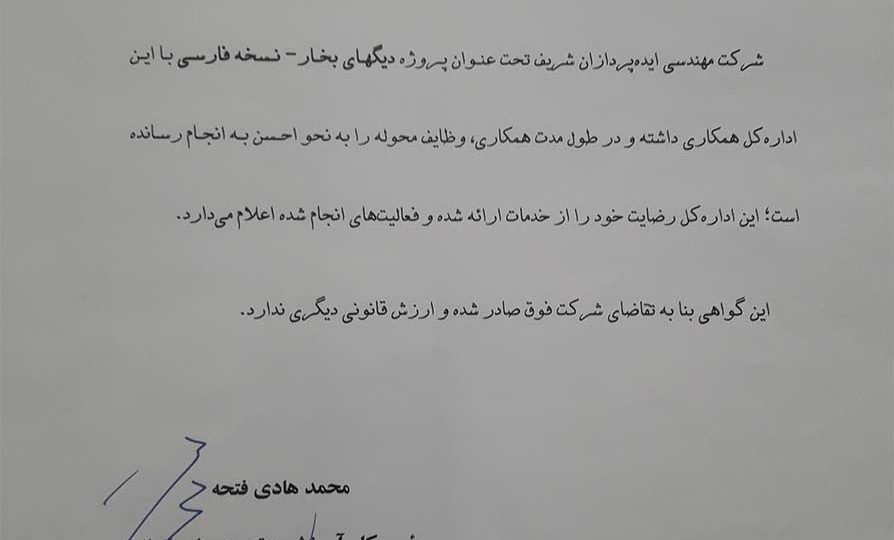 شرکت مهندسی ایده‌پردازان شریف تحت عنوان پروژه دیگهای بخار – نسخه فارسی با این
اداره‌کل همکاری داشته و در طول مدت همکاری، وظایف محوله را به نحو احسن به انجام رسانده
است؛ این اداره‌کل رضایت خود را از خدمات ارائه شده و فعالیت‌های انجام شده اعلام می‌دارد.
این گواهی بنا به تقاضای شرکت فوق صادر شده و ارزش قانونی دیگری ندارد.
محمد هادی فتحه